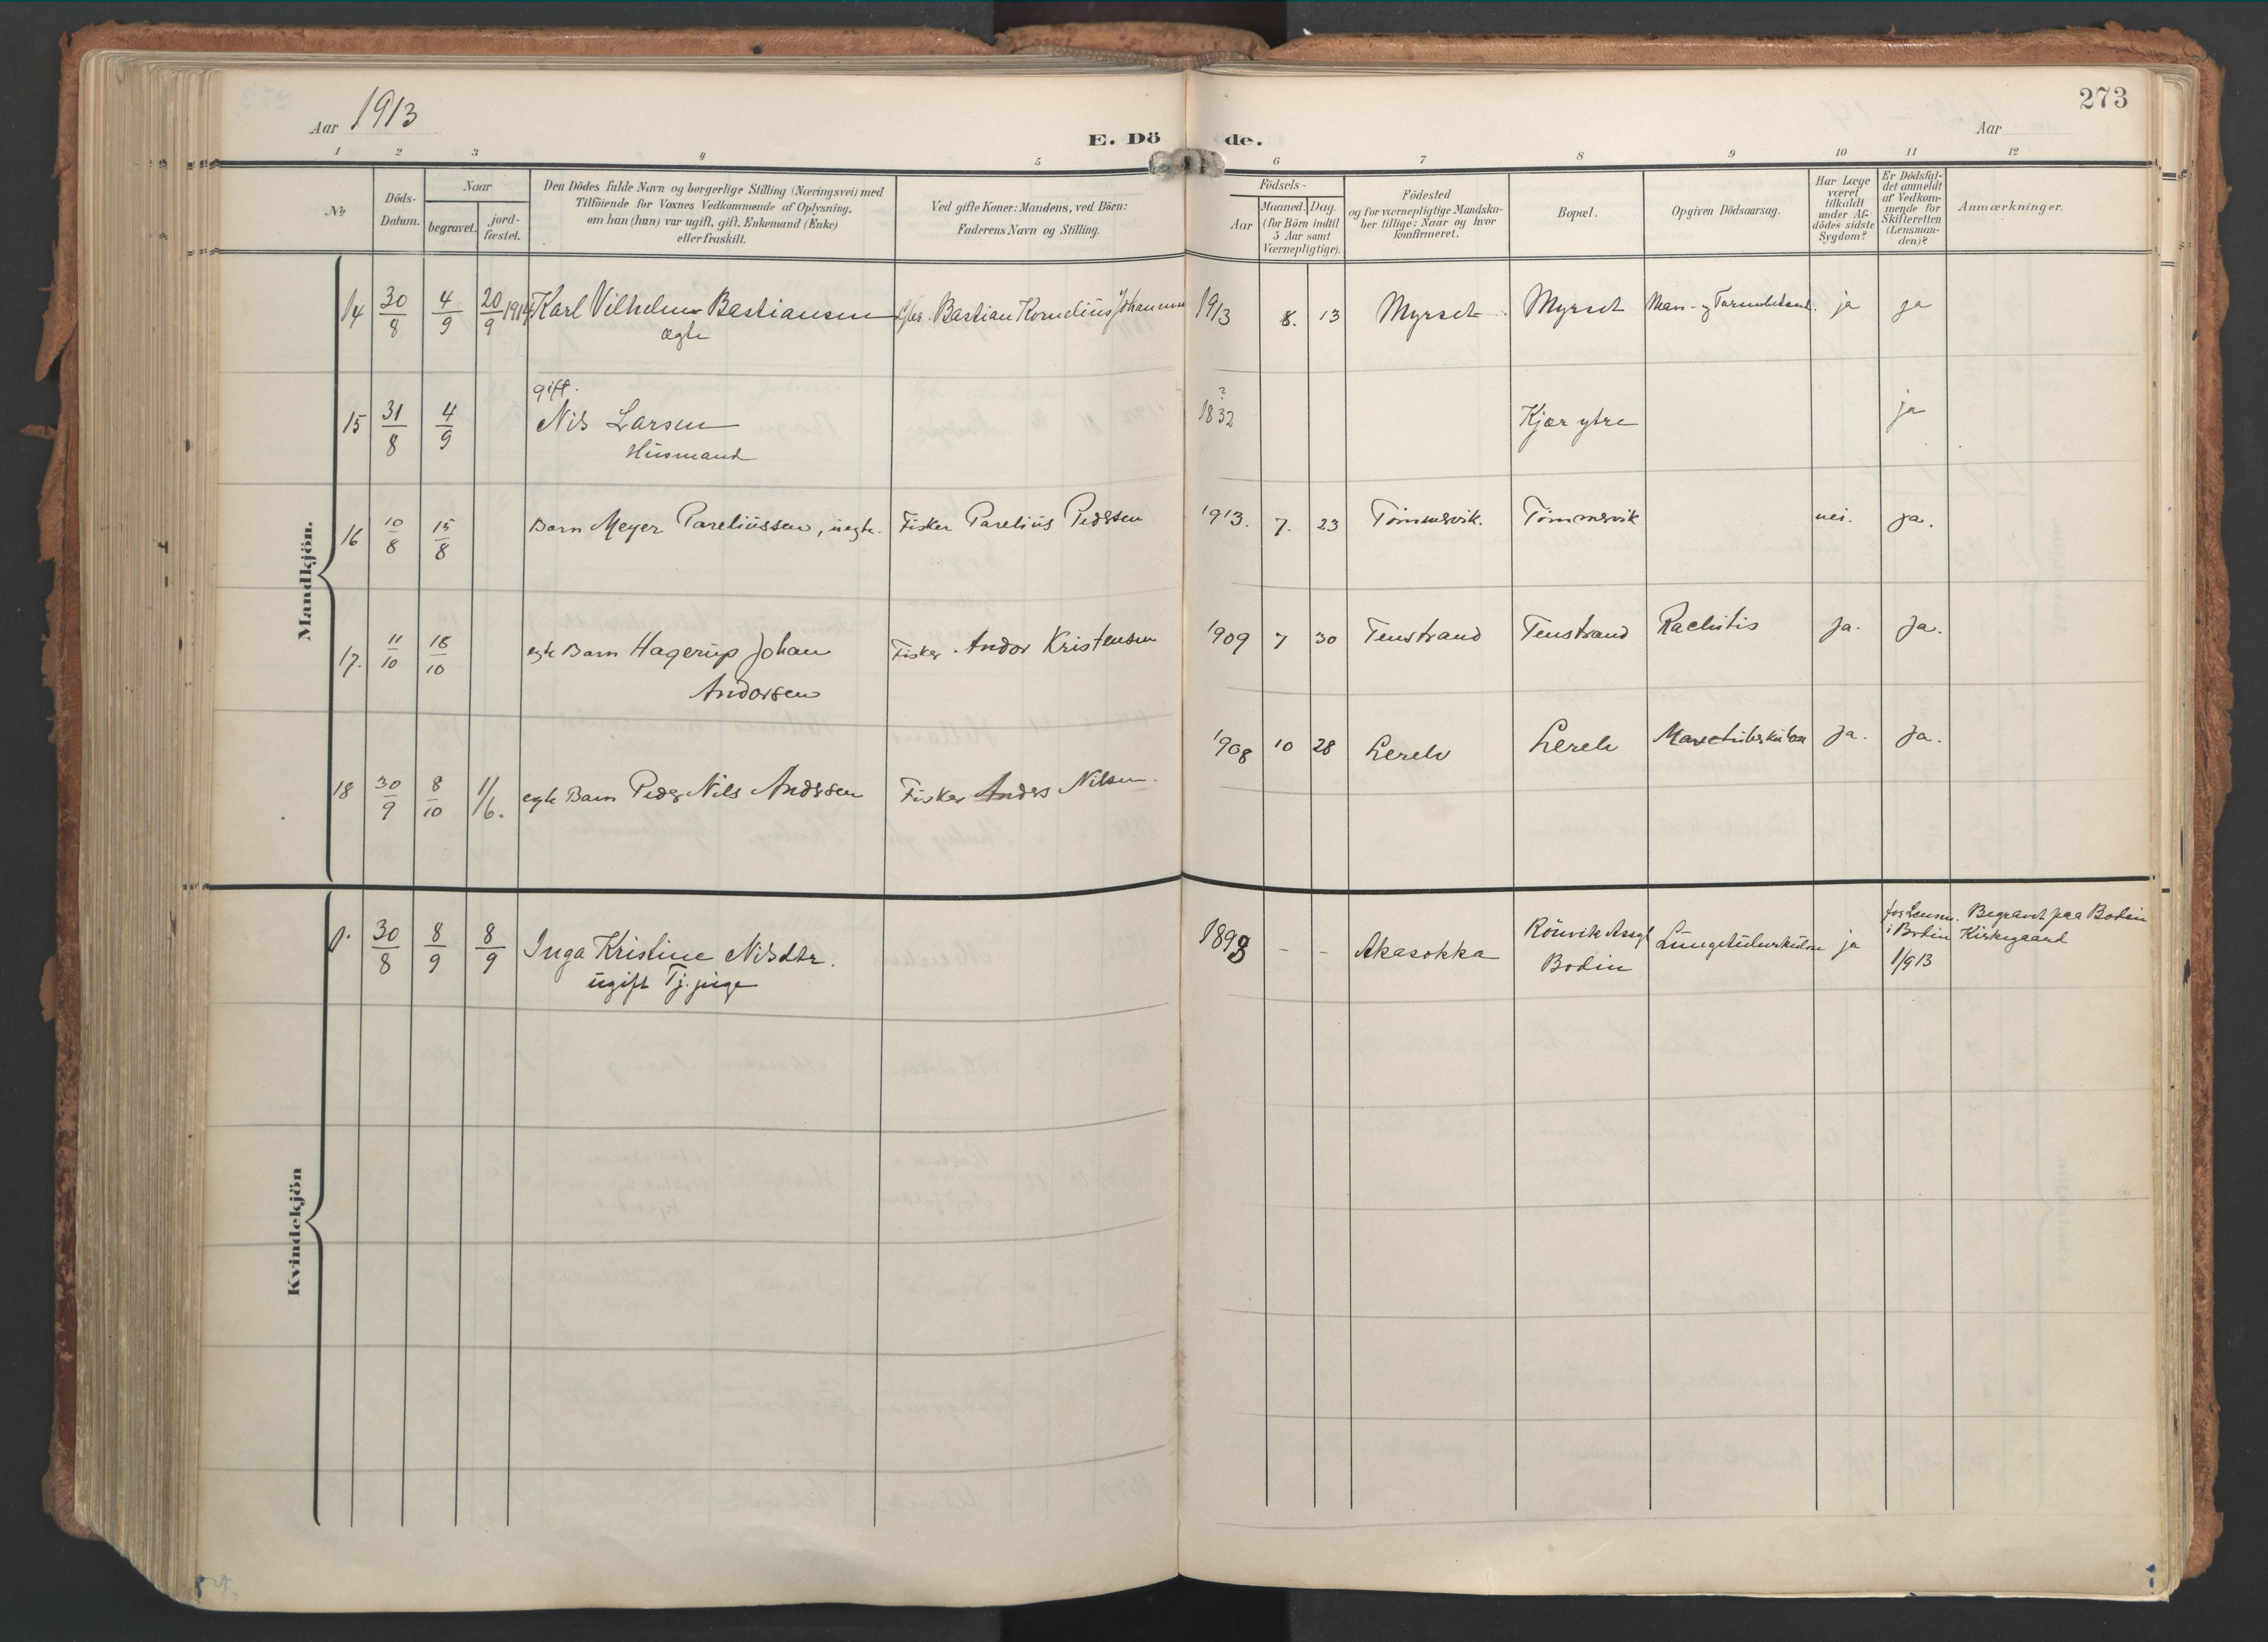 273
Aar 1913
Aar
E. Dö de.
1 2 3 4 5 6 7 8 9 10 11 12
№
Döds-
Datum.
Naar
begravet.
jord-
fæstet.
Den Dödes fulde Navn og borgerlige Stilling (Næringsvei) med
Tilföiende for Voxnes Vedkommende af Oplysning,
om han (hun) var ugift, gift, Enkemand (Enke)
eller fraskilt.
Ved gifte Koner: Mandens, ved Börn:
Faderens Navn og Stilling.
Födsels-
Aar
Maaned. Dag.
(for Börn indtil
5 Aar samt
Værnepligtige).
Födested
og for værnepligtige Mandska-
ber tillige: Naar og hvor
konfirmeret.
Bopæl.
Opgiven Dödsaarsag.
Har Læge
været
tilkaldt
under Af-
dödes sidste
Sygdom?
Er Dödsfal-
det anmeldt
af Vedkom-
mende for
Skifteretten
(Lensman-
den)?
Anmærkninger.
Mandkjön.
14 30/8 4/9 20/9 1914 Karl Vilhelm Bastiansen Gbr. Bastian Kornelius Johansen 1913 8. 13 Myrset Myrset ja ja
ægte
gift.
15 31/8 4/9 Nils Larsen ? 1832 Kjær ytre ja
Husmand
16 10/8 15/8 Barn Meyer Pareliussen, uegte. Fisker Parelius Pedersen 1913. 7. 23 Tømmervik. Tømmervik nei. ja.
17. 11/10 18/10 egte Barn Hagerup Johan Fisker Andor Kristensen 1909 7 30 Tenstrand Tenstrand Rachitis ja. ja.
Andorsen
18 30/9 8/10 1/6. egte Barn Peder Nils Andersen Fisker Anders Nilsen. 1908 10 28 Lerelv Lerelv ja. ja.
Kvindekjön
1. 30/8 8/9 8/9 Inga Kristine Nilsdtr. 1898 - - Akasokka Rönvik Asyl Lungetuberkulose ja for Lensm. Begravet paa Bodin
ugift Tj.pige Bodin i Bodin Kirkegaard
1/9 13